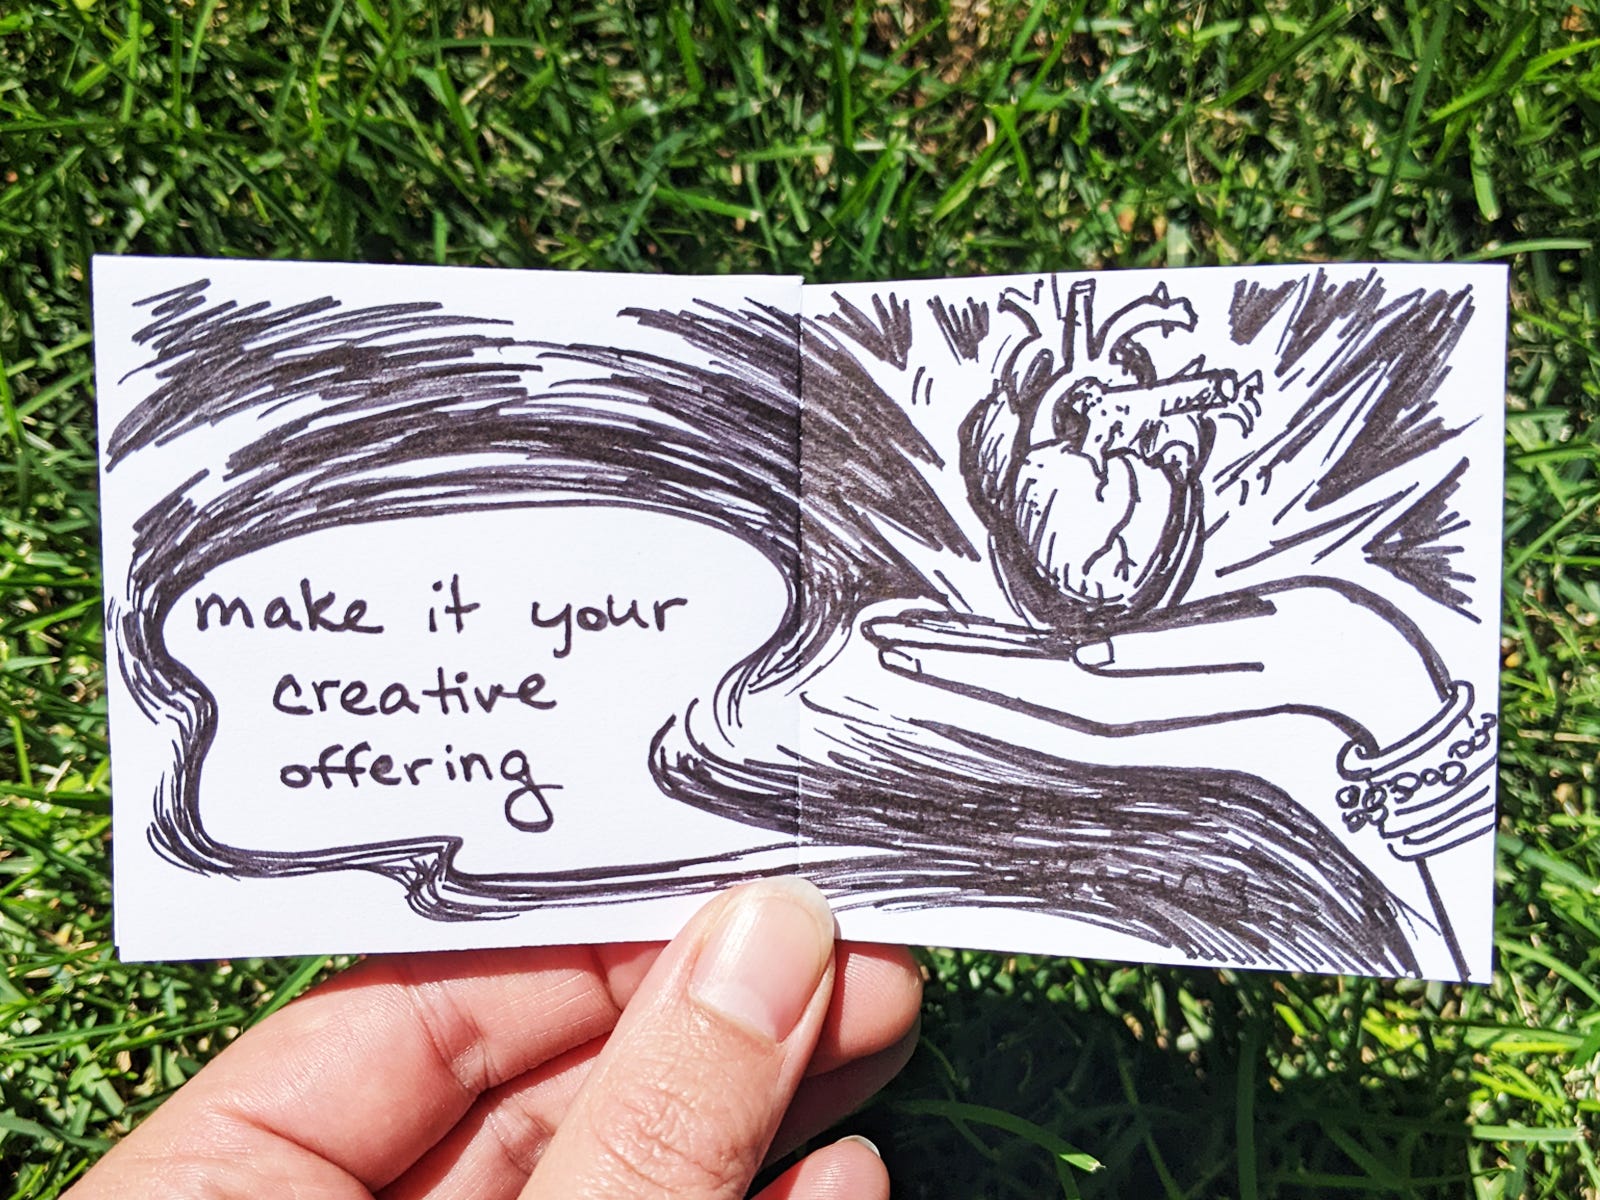 make it your
creative
offering